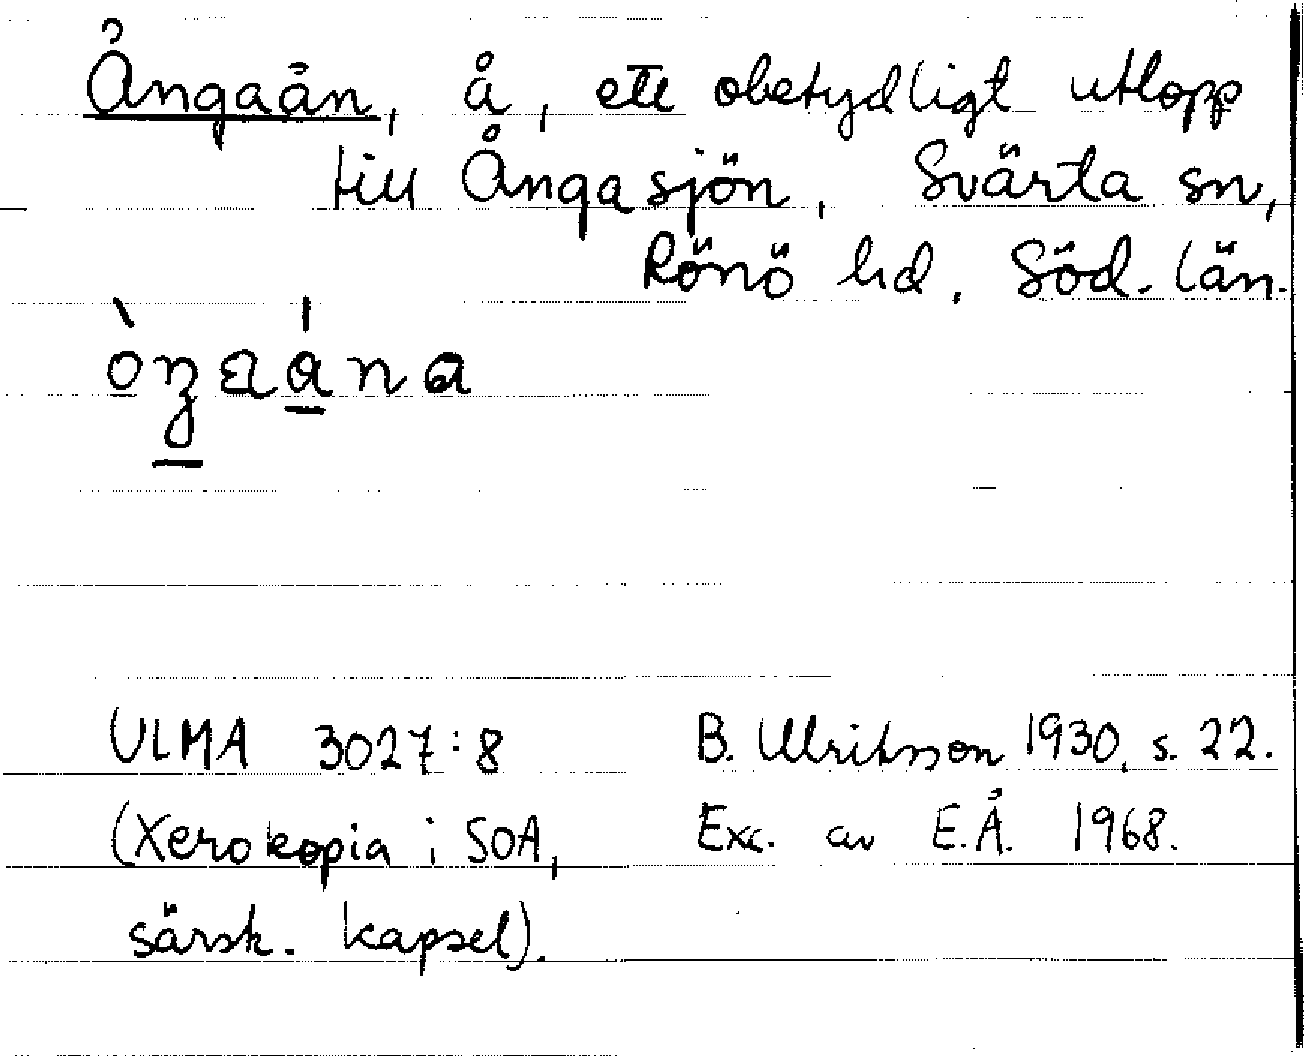 Ångaån, å, ett obetydligt utlopp
till Ångasjön, Svärta sn,
Rönö hd, Söd. län.
ULMA 3027:8 B. Ulriksson 1930, s. 22.
(Xerokopia i SOA, Exc. av E.Å. 1968.
särsk. kapsel).